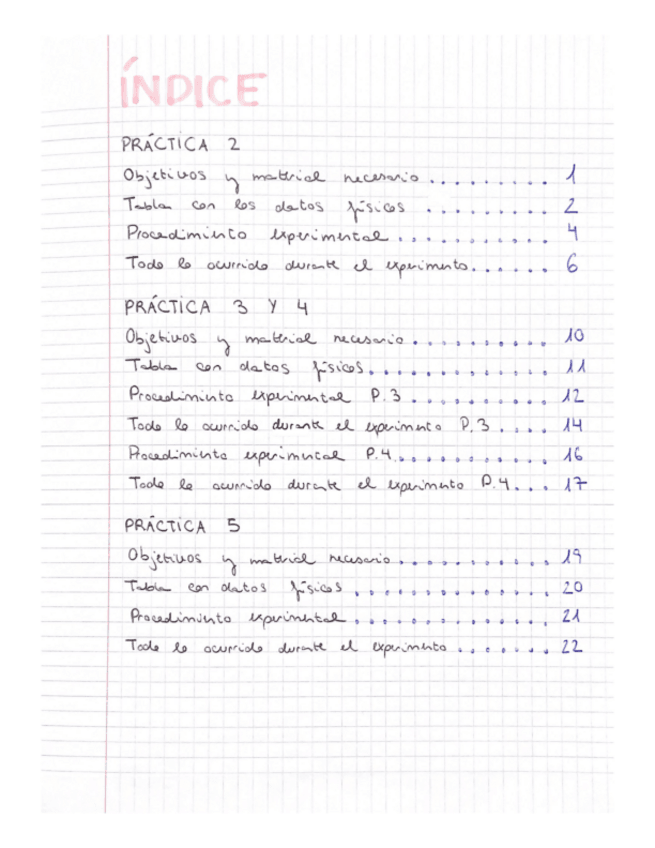 ÍNDICE
PRÁCTICA 2
Objetivos y material necesario ......... 1
Tabla con los datos físicos ......... 2
Procedimiento experimental ........... 4
Todo lo ocurrido durante el experimento....... 6
PRÁCTICA 3 Y 4
Objetivos y material necesario .......... 10
Tabla con datos físicos............. 11
Procedimiento experimental P.3 .......... 12
Todo lo ocurrido durante el experimento P.3 .... 14
Procedimiento experimental P.4........... 16
Todo lo ocurrido durante el experimento P.4... 17
PRÁCTICA 5
Objetivos y material necesario ........... 19
Tabla con datos físicos .............. 20
Procedimiento experimental .............. 21
Todo lo ocurrido durante el experimento ....... 22